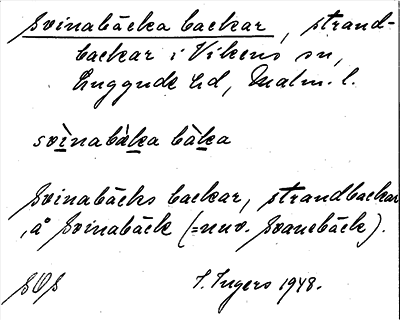 Svinabäcka backar, strand-
backar i Vikens sn,
Luggude hd, Malm. l.
svìnabàka bàka
Svinabäcks backar, strandbackar
å Svinabäck (=nuv. Svanebäck).
SOS
I. Ingers 1948.